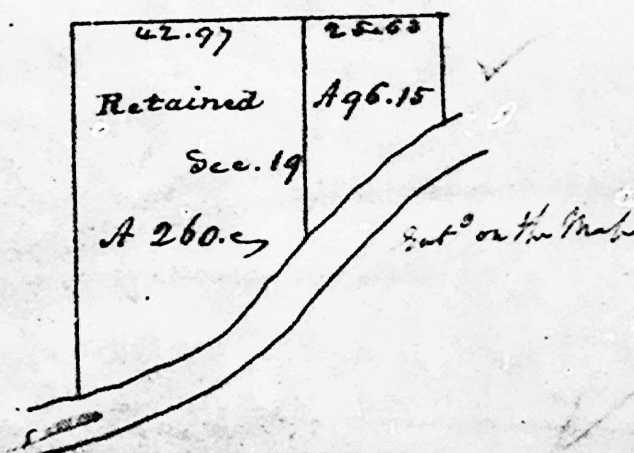 42.97 25.63
Retained A 96.15
Sec. 19
A 260.
Ent^d on the Map